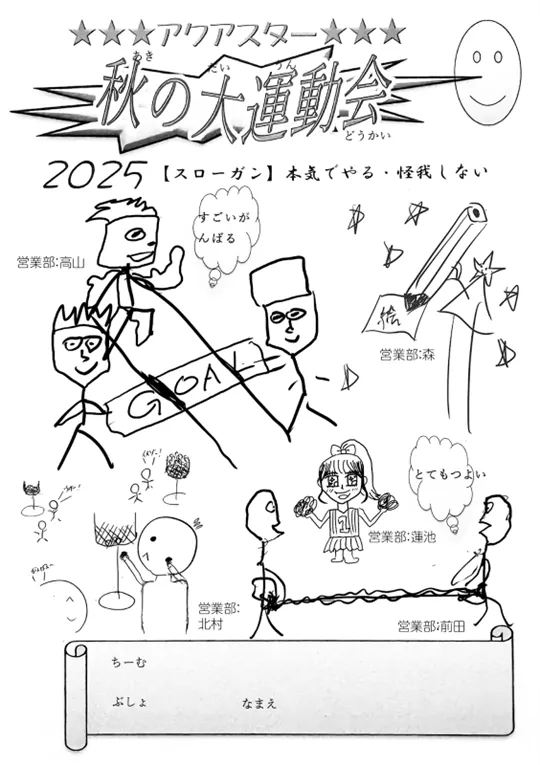 ★★★アクアスター★★★
あき たい うん
秋の大運動会
どうかい
2025 【スローガン】本気でやる・怪我しない
すごいが
んばる
営業部:高山
絵
営業部:森
GOAL
とてもつよい
1
営業部:蓮池
営業部:
北村
営業部:前田
ちーむ
ぶしょ なまえ